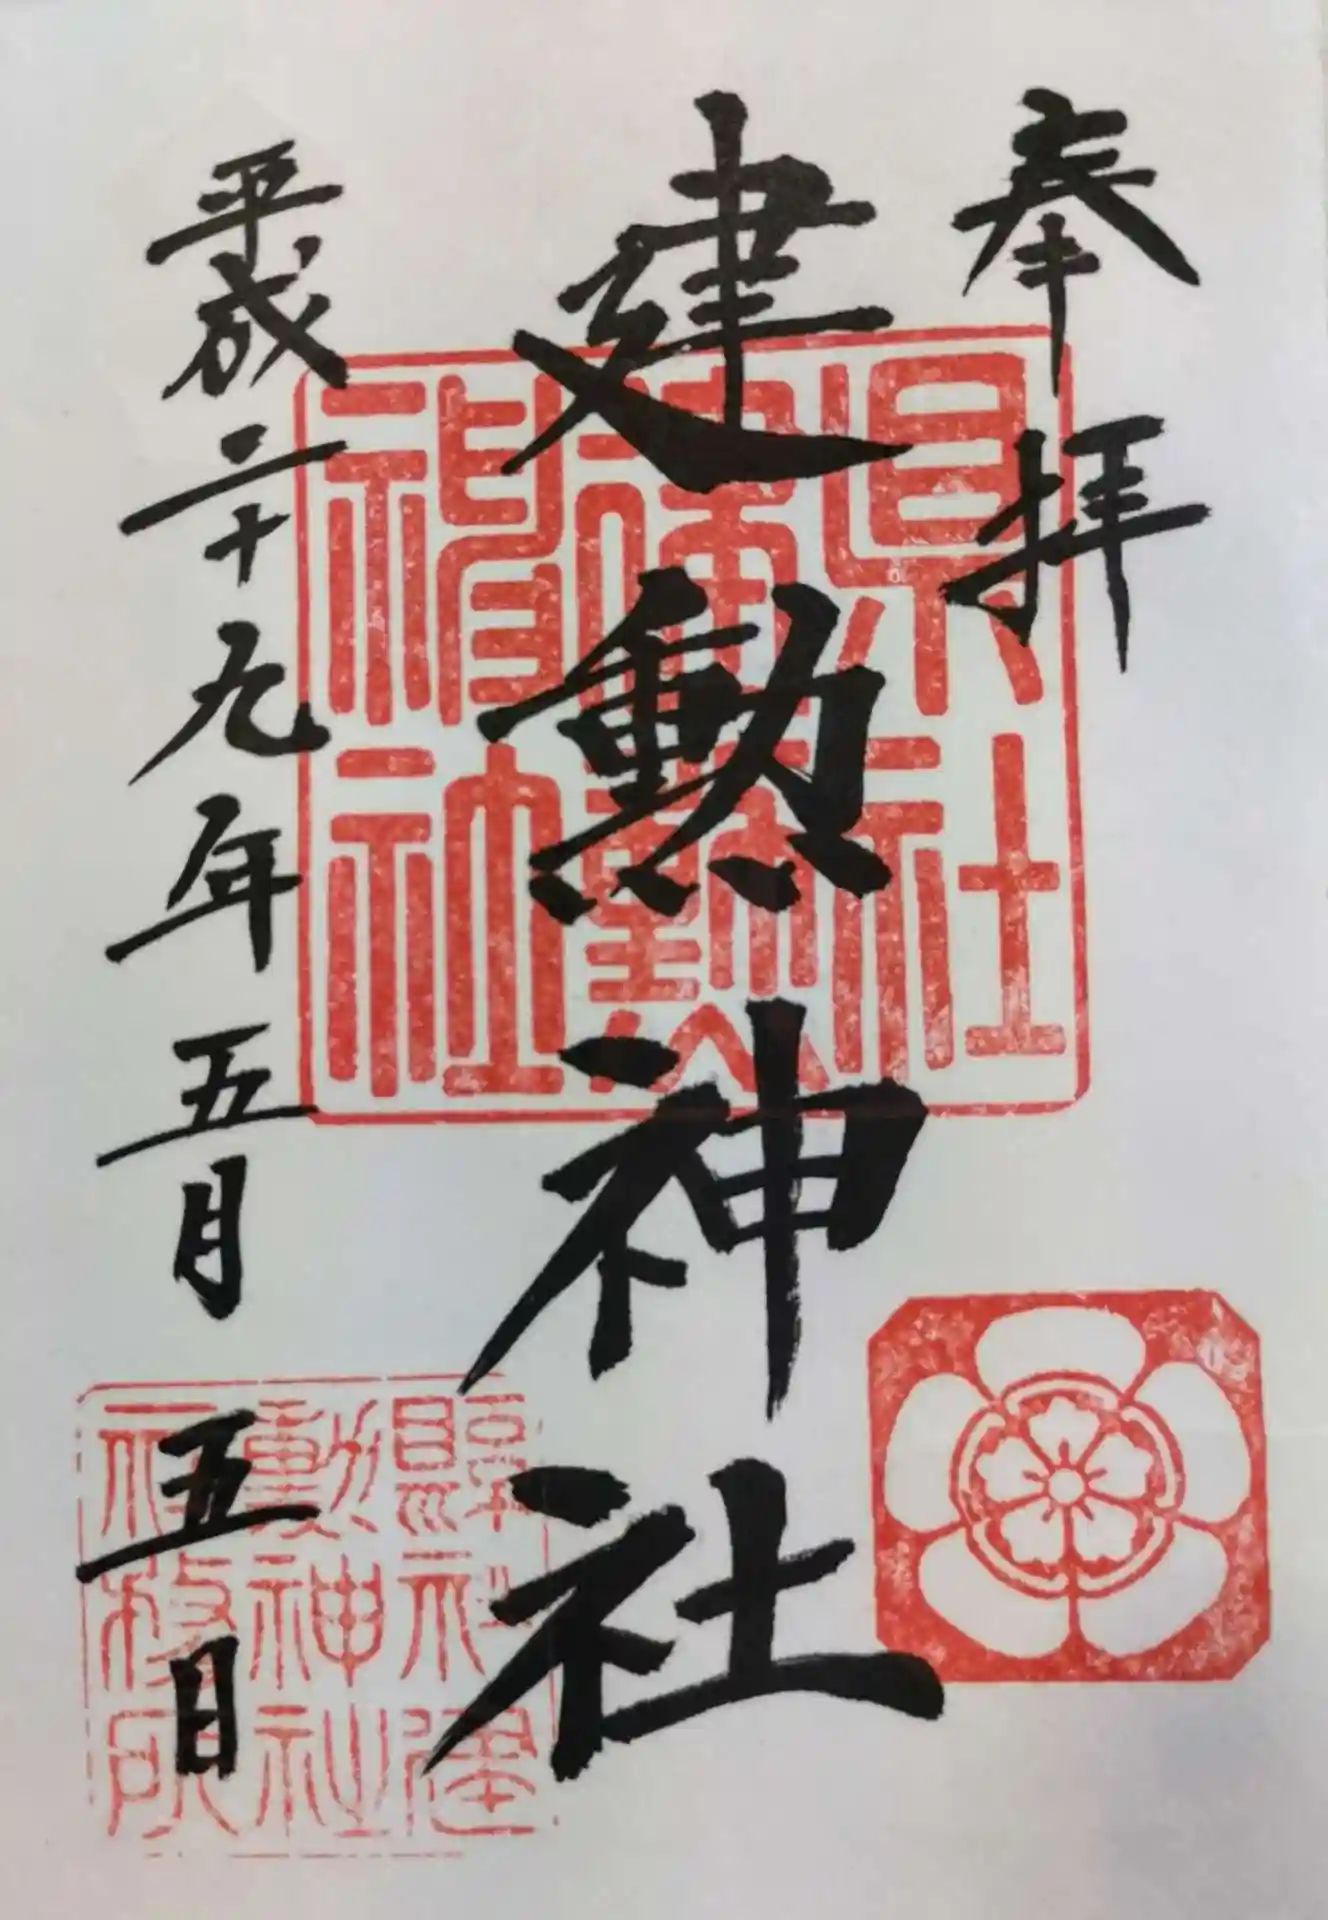 奉拝
建勲神社
平成二十九年五月五日
県社
建勲
神社
縣社建
勲神社
社務所